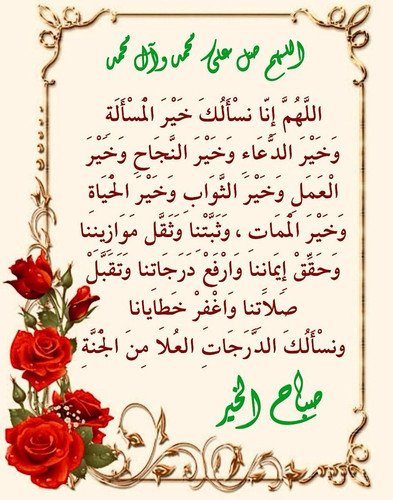 اللهم صل على محمد وآل محمد
اللَّهُمَّ إِنّا نسْأَلُكَ خَيْرَ الْمسْأَلَة
وَخَيْرَ الدُّعَاء وَخَيْرَ النَّجاح وَخَيْرَ
الْعَمَلِ وَخَيْرَ الثَّوَابِ وَخَيْرَ الْحَيَاةِ
وَخَيْرَ الْمَمَات ، وَثَبِّتْنا وَثَقِّل مَوَازِيننا
وَحَقِّقْ إِيمَاننا وَارْفَعْ دَرَجَاتنا وَتَقَبَّلْ
صَلَاتَنا وَاغْفِرْ خَطَايانا
ونسْأَلُكَ الدَّرَجَاتِ العُلَا مِنَ الْجَنَّةِ
صباح الخير